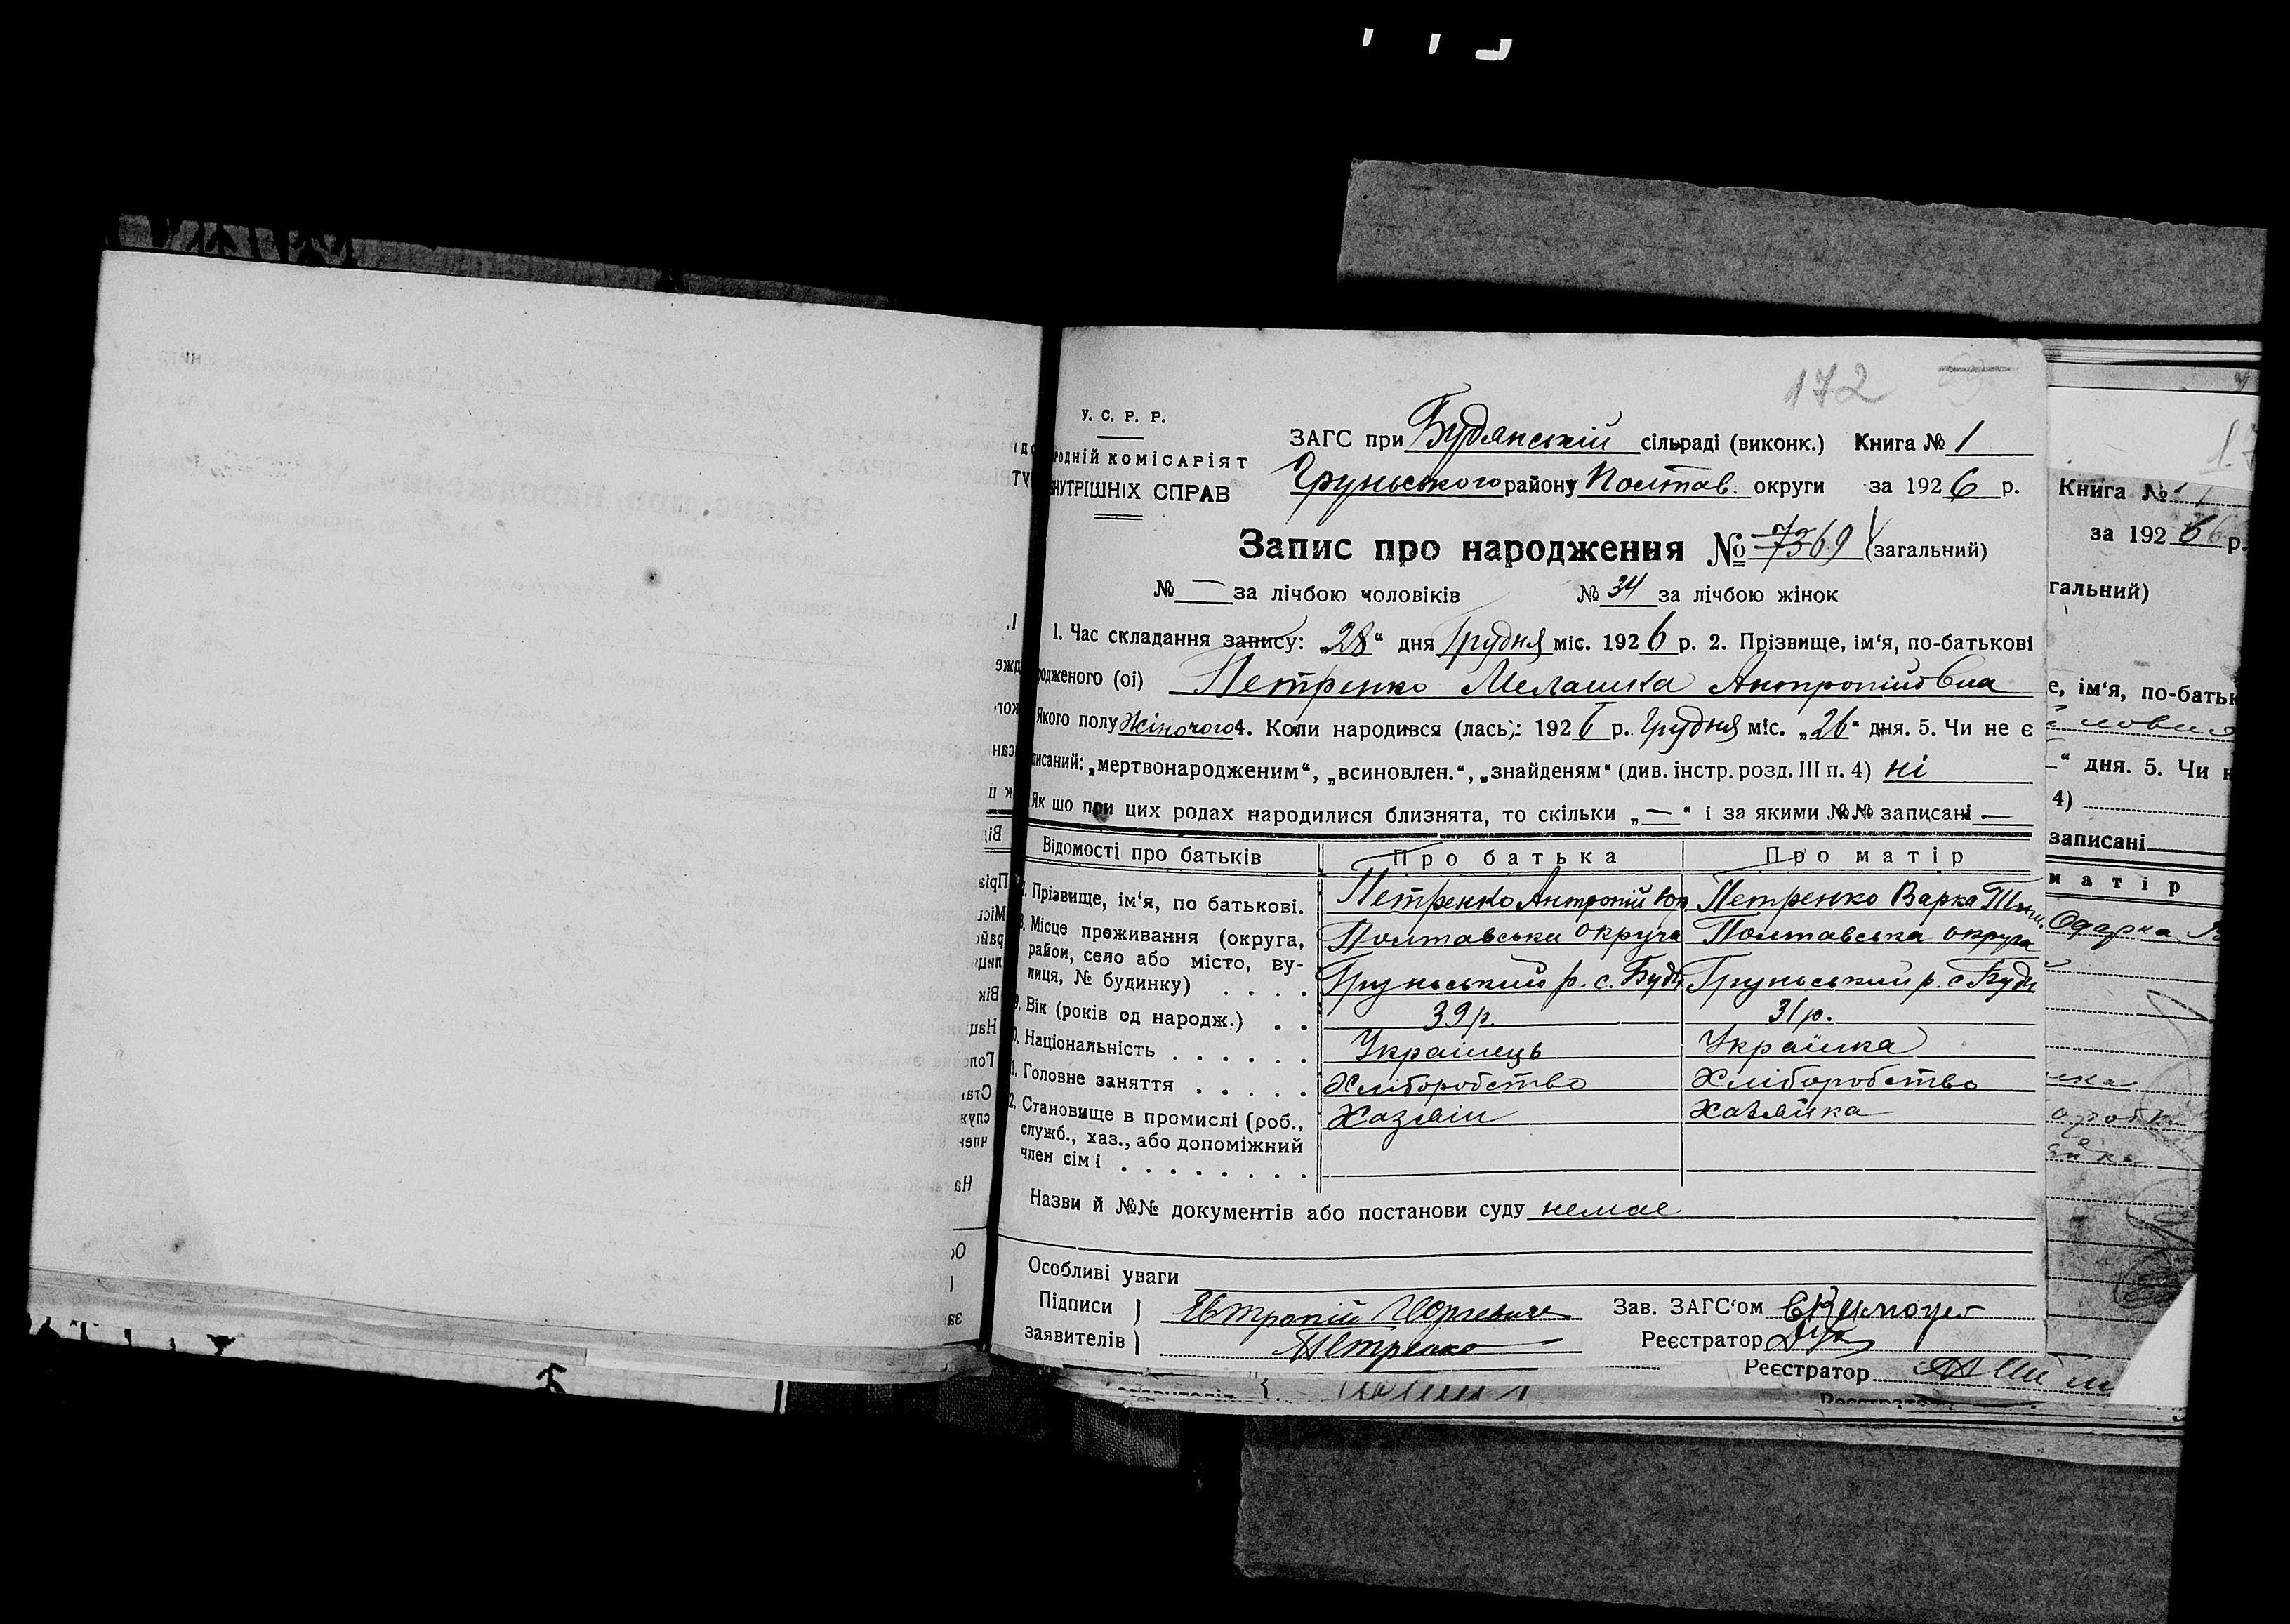 172
У. С. Р. Р.
ЗАГС при Будянській сільраді (виконк.) Книга № 1
РОДНІЙ КОМІСАРІЯТ
Груньського району Полтав. округи за 1926 р.
НУТРІШНІХ СПРАВ
Запис про народження № 69 (загальний)
№ — за лічбою чоловіків № 34 за лічбою жінок
1. Час складання запису: „28“ дня Грудня міс. 1926 р. 2. Прізвище, ім‘я, по-батькові
родженого (ої) Петренко Мелашка Антропійовна
Якого полу Жіночого 4. Коли народився (лась): 1926 р. Грудня міс. „26“ дня. 5. Чи не є
писаний: „мертвонародженим“, „всиновлен.“, „знайденям“ (див. інстр. розд. III п. 4) ні
Як що при цих родах народилися близнята, то скільки „—“ і за якими №№ записані —
Відомості про батьків Про батька Про матір
Прізвище, ім‘я, по батькові. Петренко Антропій Юр Петренко Варка Тим.
Місце проживання (округа, Полтавська округа Полтавська округа
район, село або місто, ву-
лиця, № будинку) . . . . Груньський р. с. Буди Груньський р. с Буди
9. Вік (років од народж.) . . 39 р. 31 р.
Національність . . . . . . Українець Українка
1. Головне заняття . . . . . Хліборобство Хліборобство
2. Становище в промислі (роб., Хазяін Хазяйка
служб., хаз., або допоміжний
член сім і . . . . . . . .
Назви й №№ документів або постанови суду немає
Особливі уваги
Підписи } Евтропій Юргевич Зав. ЗАГС‘ом
заявителів } Петренко Реєстратор
Книга № 1
за 1926 р.
гальний)
е, ім‘я, по-батьк
“ дня. 5. Чи н
4)
записані
матір
Одарка
Реєстратор